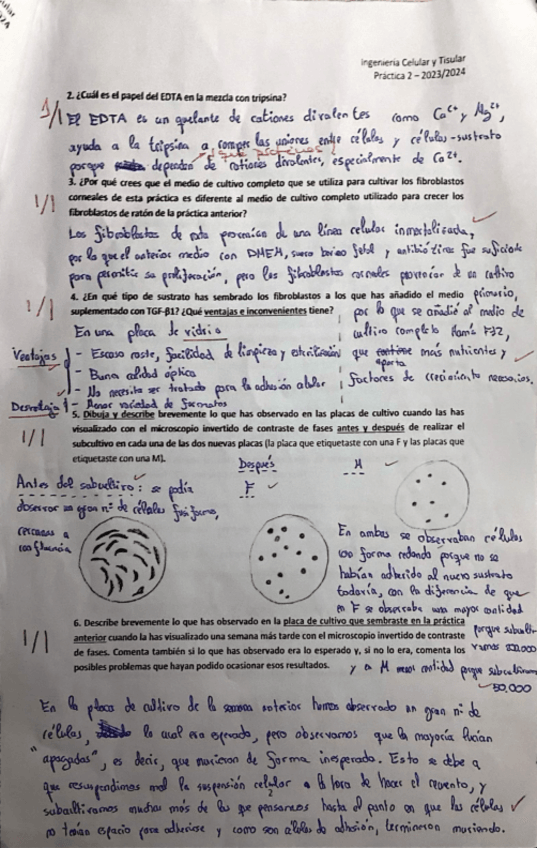 Ingeniería Celular y Tisular
Práctica 2 – 2023/2024
2. ¿Cuál es el papel del EDTA en la mezcla con tripsina?
1/1
El EDTA es un quelante de cationes divalentes como Ca²⁺ y Mg²⁺,
ayuda a la tripsina a romper las uniones entre células y células-sustrato
¿Qué proteínas?
porque dependen de cationes divalentes, especialmente de Ca²⁺.
3. ¿Por qué crees que el medio de cultivo completo que se utiliza para cultivar los fibroblastos
corneales de esta práctica es diferente al medio de cultivo completo utilizado para crecer los
fibroblastos de ratón de la práctica anterior?
1/1
Los fibroblastos de rata procedían de una línea celular inmortalizada,
por lo que el anterior medio con DMEM, suero bovino fetal y antibióticos fue suficiente
para permitir su proliferación, pero los fibroblastos corneales provenían de un cultivo
primario,
por lo que se añadió al medio de
cultivo completo Ham's F12,
que aporta más nutrientes y
factores de crecimiento necesarios.
4. ¿En qué tipo de sustrato has sembrado los fibroblastos a los que has añadido el medio
suplementado con TGF-β1? ¿Qué ventajas e inconvenientes tiene?
1/1
En una placa de vidrio
Ventajas
- Escaso coste, facilidad de limpieza y esterilización
- Buena calidad óptica
- No necesita ser tratado para la adhesión celular
Desventaja
- Menor variedad de formatos
5. Dibuja y describe brevemente lo que has observado en las placas de cultivo cuando las has
visualizado con el microscopio invertido de contraste de fases antes y después de realizar el
subcultivo en cada una de las dos nuevas placas (la placa que etiquetaste con una F y las placas que
etiquetaste con una M).
1/1
Antes del subcultivo: se podía
observar un gran nº de células fusiformes,
cercanas a
confluencia
Después
F
M
En ambas se observaban células
con forma redonda porque no se
habían adherido al nuevo sustrato
todavía, con la diferencia de que
en F se observaba una mayor cantidad
porque subculti-
vamos 200.000
y en M menor cantidad porque subcultivamos
50.000
6. Describe brevemente lo que has observado en la placa de cultivo que sembraste en la práctica
anterior cuando la has visualizado una semana más tarde con el microscopio invertido de contraste
de fases. Comenta también si lo que has observado era lo esperado y, si no lo era, comenta los
posibles problemas que hayan podido ocasionar esos resultados.
1/1
En la placa de cultivo de la semana anterior hemos observado un gran nº de
células, lo cual era esperado, pero observamos que la mayoría lucían
"apagadas", es decir, que murieron de forma inesperada. Esto se debe a
que resuspendimos mal la suspensión celular a la hora de hacer el recuento, y
subcultivamos muchas más de las que pensamos hasta el punto en que las células
no tenían espacio para adherirse y como son células de adhesión, terminaron muriendo.